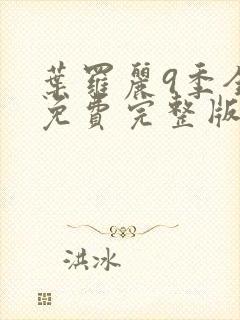 葉羅麗9季全
免費完整版
洪冰